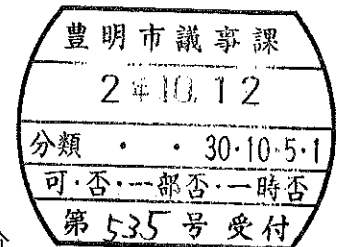 豊明市議事課
2年10.12
分類 ・ ・ 30・10・5・1
可・否・一部否・一時否
第535号受付